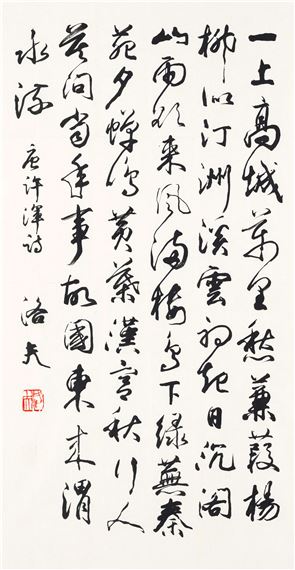 一上高城萬里愁蒹葭楊
柳似汀洲溪雲初起日沉閣
山雨欲來風滿樓鳥下綠蕪秦
苑夕蟬鳴黃葉漢宮秋行人
莫問當年事故國東來渭
水流
唐許渾詩
洛夫